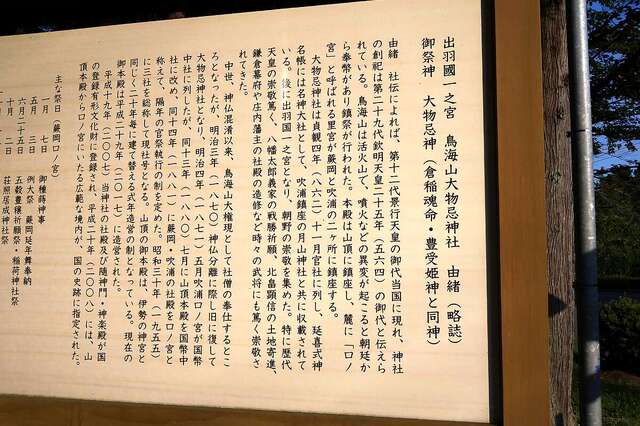 出羽國一之宮　鳥海山大物忌神社　由緒（略誌）
御祭神　大物忌神（倉稲魂命・豊受姫神と同神）
由緒　社伝によれば、第十二代景行天皇の御代当国に現れ、神社
の創祀は第二十九代欽明天皇二十五年（五六四）の御代と伝えら
れている。鳥海山は活火山で、噴火などの異変が起こると朝廷か
ら奉幣があり鎮祭が行われた。本殿は山頂に鎮座し、麓に「口ノ
宮」と呼ばれる里宮が蕨岡と吹浦の二ケ所に鎮座する。
大物忌神社は貞観四年（八六二）十一月官社に列し、延喜式神
名帳には名神大社として、吹浦鎮座の月山神社と共に収載されて
いる。後に出羽国一之宮となり、朝野の崇敬を集めた。特に歴代
天皇の崇敬篤く、八幡太郎義家の戦勝祈願、北畠顕信の土地寄進、
鎌倉幕府や庄内藩主の社殿の造修など時々の武将にも篤く崇敬さ
れてきた。
中世、神仏混淆以来、鳥海山大権現として社僧の奉仕するとこ
ろとなったが、明治三年（一八七〇）神仏分離に際し旧に復して
大物忌神社となり、明治四年（一八七一）五月吹浦口ノ宮が国幣
中社に列したが、同十三年（一八八〇）七月に山頂本殿を国幣中
社に改め、同十四年（一八八一）に蕨岡・吹浦の社殿を口ノ宮と
称えて、隔年の官祭執行の制を定めた。昭和三十年（一九五五）
に三社を総称して現社号となる。山頂の御本殿は、伊勢の神宮と
同じく二十年毎に建て替える式年造営の制となっている。現在の
御本殿は平成二十九年（二〇一七）に造営された。
平成十九年（二〇〇七）当神社の社殿及び随神門・神楽殿が国
の登録有形文化財に登録され、平成二十年（二〇〇八）には、山
頂本殿から口ノ宮にいたる広範な境内が、国の史跡に指定された。
主な祭日（蕨岡口ノ宮）
一月　七日　御種蒔神事
五月　三日　例大祭　蕨岡延年舞奉納
六月二十五日　五穀豊穣祈願祭・稲荷神社祭
十月　二日　荘照居成神社祭